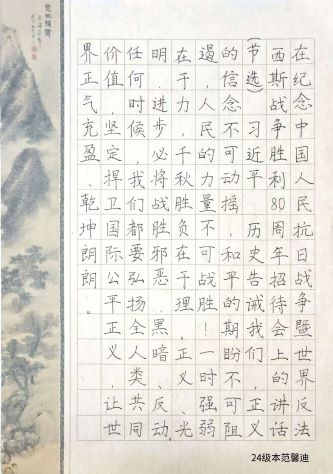 在纪念中国人民抗日战争暨世界反法
西斯战争胜利80周年招待会上的讲话
(节选) 习近平 历史告诫我们,正义
的信念不可动摇,和平的期盼不可阻
遏,人民的力量不可战胜!一时强弱
在于力,千秋胜负在于理。正义、光
明、进步,必将战胜邪恶、黑暗、反动。
任何时候,我们都要弘扬全人类共同
价值,坚定捍卫国际公平正义,让世
界正气充盈、乾坤朗朗。
24级本范馨迪